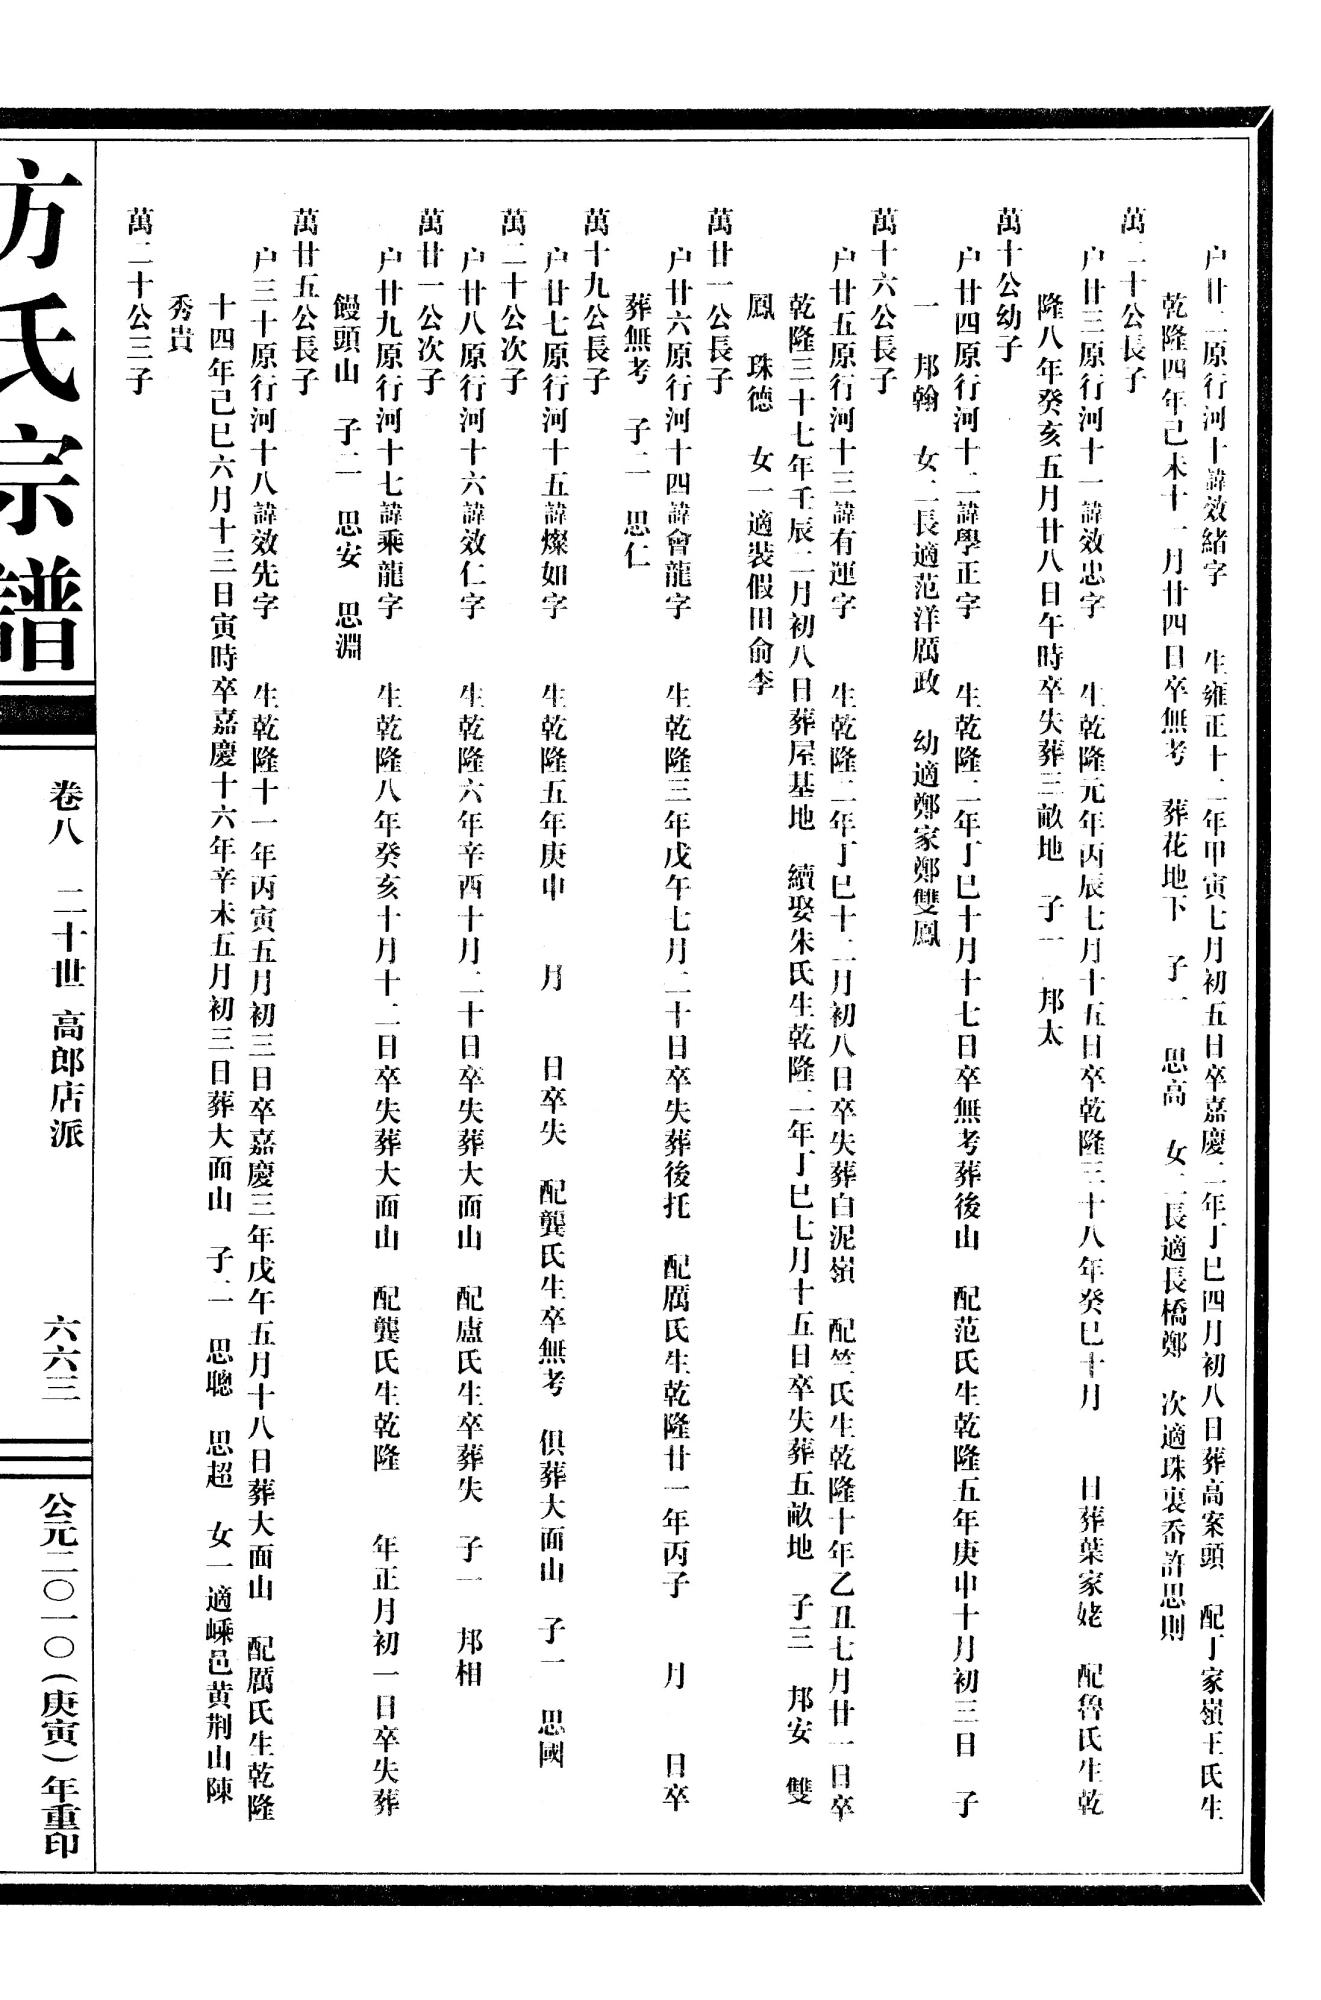 户廿二原行河十諱效緒字　生雍正十二年甲寅七月初五日卒嘉慶二年丁巳四月初八日葬高案頭　配丁家嶺王氏生
乾隆四年己未十一月廿四日卒無考　葬花地下　子一　思高　女二長適長橋鄭　次適珠裏岙許思則
萬二十公長子
户廿三原行河十一諱效忠字　生乾隆元年丙辰七月十五日卒乾隆三十八年癸巳十月　日葬葉家姥　配魯氏生乾
隆八年癸亥五月廿八日午時卒失葬三畝地　子一　邦太
萬十公幼子
户廿四原行河十二諱學正字　生乾隆二年丁巳十月十七日卒無考葬後山　配范氏生乾隆五年庚申十月初三日　子
一　邦翰　女二長適范洋厲政　幼適鄭家鄭雙鳳
萬十六公長子
户廿五原行河十三諱有運字　生乾隆二年丁巳十二月初八日卒失葬白泥嶺　配竺氏生乾隆十年乙丑七月廿一日卒
乾隆三十七年壬辰二月初八日葬屋基地　續娶朱氏生乾隆二年丁巳七月十五日卒失葬五畝地　子三　邦安　雙
鳳　珠德　女一適裝假田俞李
萬廿一公長子
户廿六原行河十四諱會龍字　生乾隆三年戊午七月二十日卒失葬後托　配厲氏生乾隆廿一年丙子　月　日卒
葬無考　子二　思仁
萬十九公長子
户廿七原行河十五諱燦如字　生乾隆五年庚申　月　日卒失　配龔氏生卒無考　俱葬大面山　子一　思國
萬二十公次子
户廿八原行河十六諱效仁字　生乾隆六年辛酉十月二十日卒失葬大面山　配盧氏生卒葬失　子一　邦相
萬廿一公次子
户廿九原行河十七諱乘龍字　生乾隆八年癸亥十月十二日卒失葬大面山　配龔氏生乾隆　年正月初一日卒失葬
饅頭山　子二　思安　思淵
萬廿五公長子
户三十原行河十八諱效先字　生乾隆十一年丙寅五月初三日卒嘉慶三年戊午五月十八日葬大面山　配厲氏生乾隆
十四年己巳六月十三日寅時卒嘉慶十六年辛未五月初三日葬大面山　子二　思聰　思超　女一適嵊邑黄荆山陳
秀貴
萬二十公三子
方氏宗譜
卷八　二十世　高郎店派　六六三
公元二〇一〇（庚寅）年重印